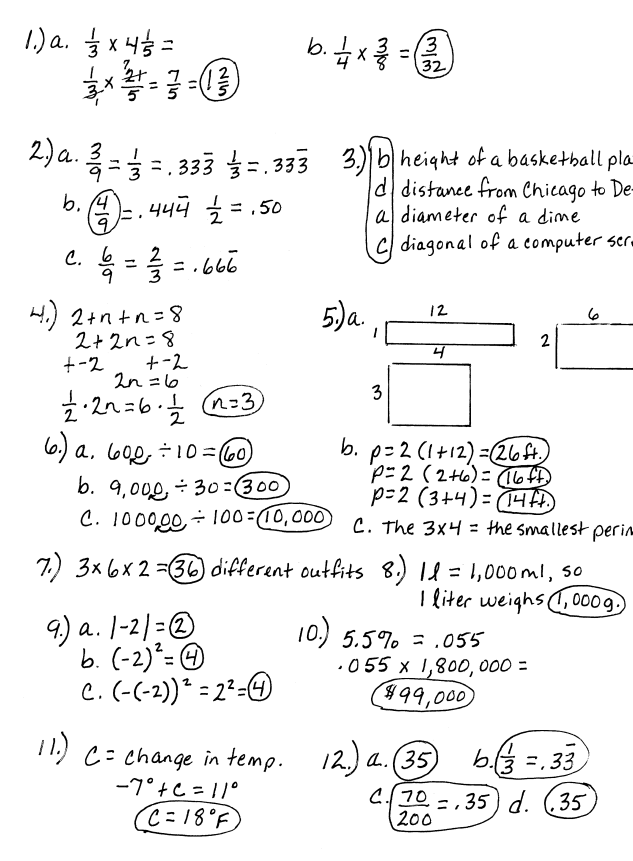 1.) a. 1/3 x 4 1/5 =
1/3 x 21/5 = 7/5 = 1 2/5
7
1
b. 1/4 x 3/8 = 3/32
2.) a. 3/9 = 1/3 = .333̄ 1/3 = .333̄
b. 4/9 = .444̄ 1/2 = .50
c. 6/9 = 2/3 = .666̄
3.) b height of a basketball pla
d distance from Chicago to De
a diameter of a dime
c diagonal of a computer scr
4.) 2+n+n=8
2+2n=8
+-2 +-2
2n=6
1/2·2n=6·1/2 n=3
5.) a.
12
1
6
2
4
3
b. p=2(1+12)=26ft.
p=2(2+6)=16ft.
p=2(3+4)=14ft.
c. The 3x4 = the smallest perim
6.) a. 600 ÷10=60
b. 9,000 ÷30=300
c. 1000000 ÷100=10,000
7.) 3x6x2=36 different outfits
8.) 1l = 1,000ml, so
1 liter weighs 1,000g.
9.) a. |-2|=2
b. (-2)²=4
c. (-(-2))²=2²=4
10.) 5.5% = .055
.055 x 1,800,000 =
$99,000
11.) C= change in temp.
-7°+C=11°
C=18°F
12.) a. 35 b. 1/3=.33̄
c. 70/200=.35 d. .35